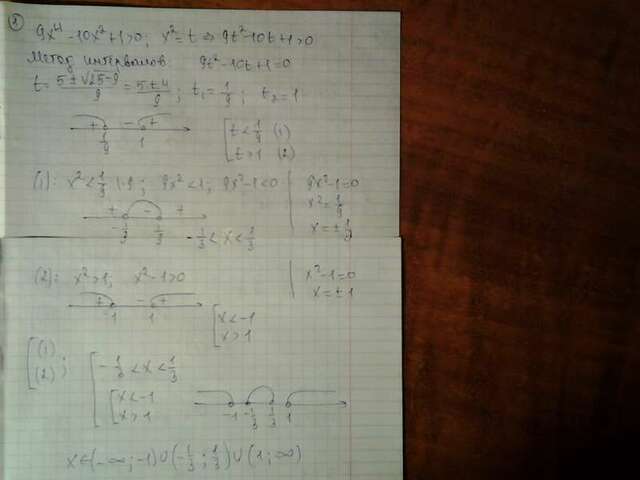 2
9x⁴ -10x²+1>0; x²=t ⇒ 9t²-10t+1>0
Метод интервалов: 9t²-10t+1=0
t = (5±√25-9)/9 = (5±4)/9; t₁=1/9; t₂=1
+ - +
1/9 1
[ t < 1/9 (1)
t > 1 (2)
(1): x² < 1/9 |·9; 9x²<1; 9x²-1<0
9x²-1=0
x²=1/9
x=±1/3
+ - +
-1/3 1/3
-1/3 < x < 1/3
(2): x²>1; x²-1>0
x²-1=0
x=±1
+ - +
-1 1
[ x<-1
x>1
[ (1)
(2) ;
[ -1/3 < x < 1/3
[ x<-1
x>1
-1 -1/3 1/3 1
x∈(-∞;-1)∪(-1/3;1/3)∪(1;∞)